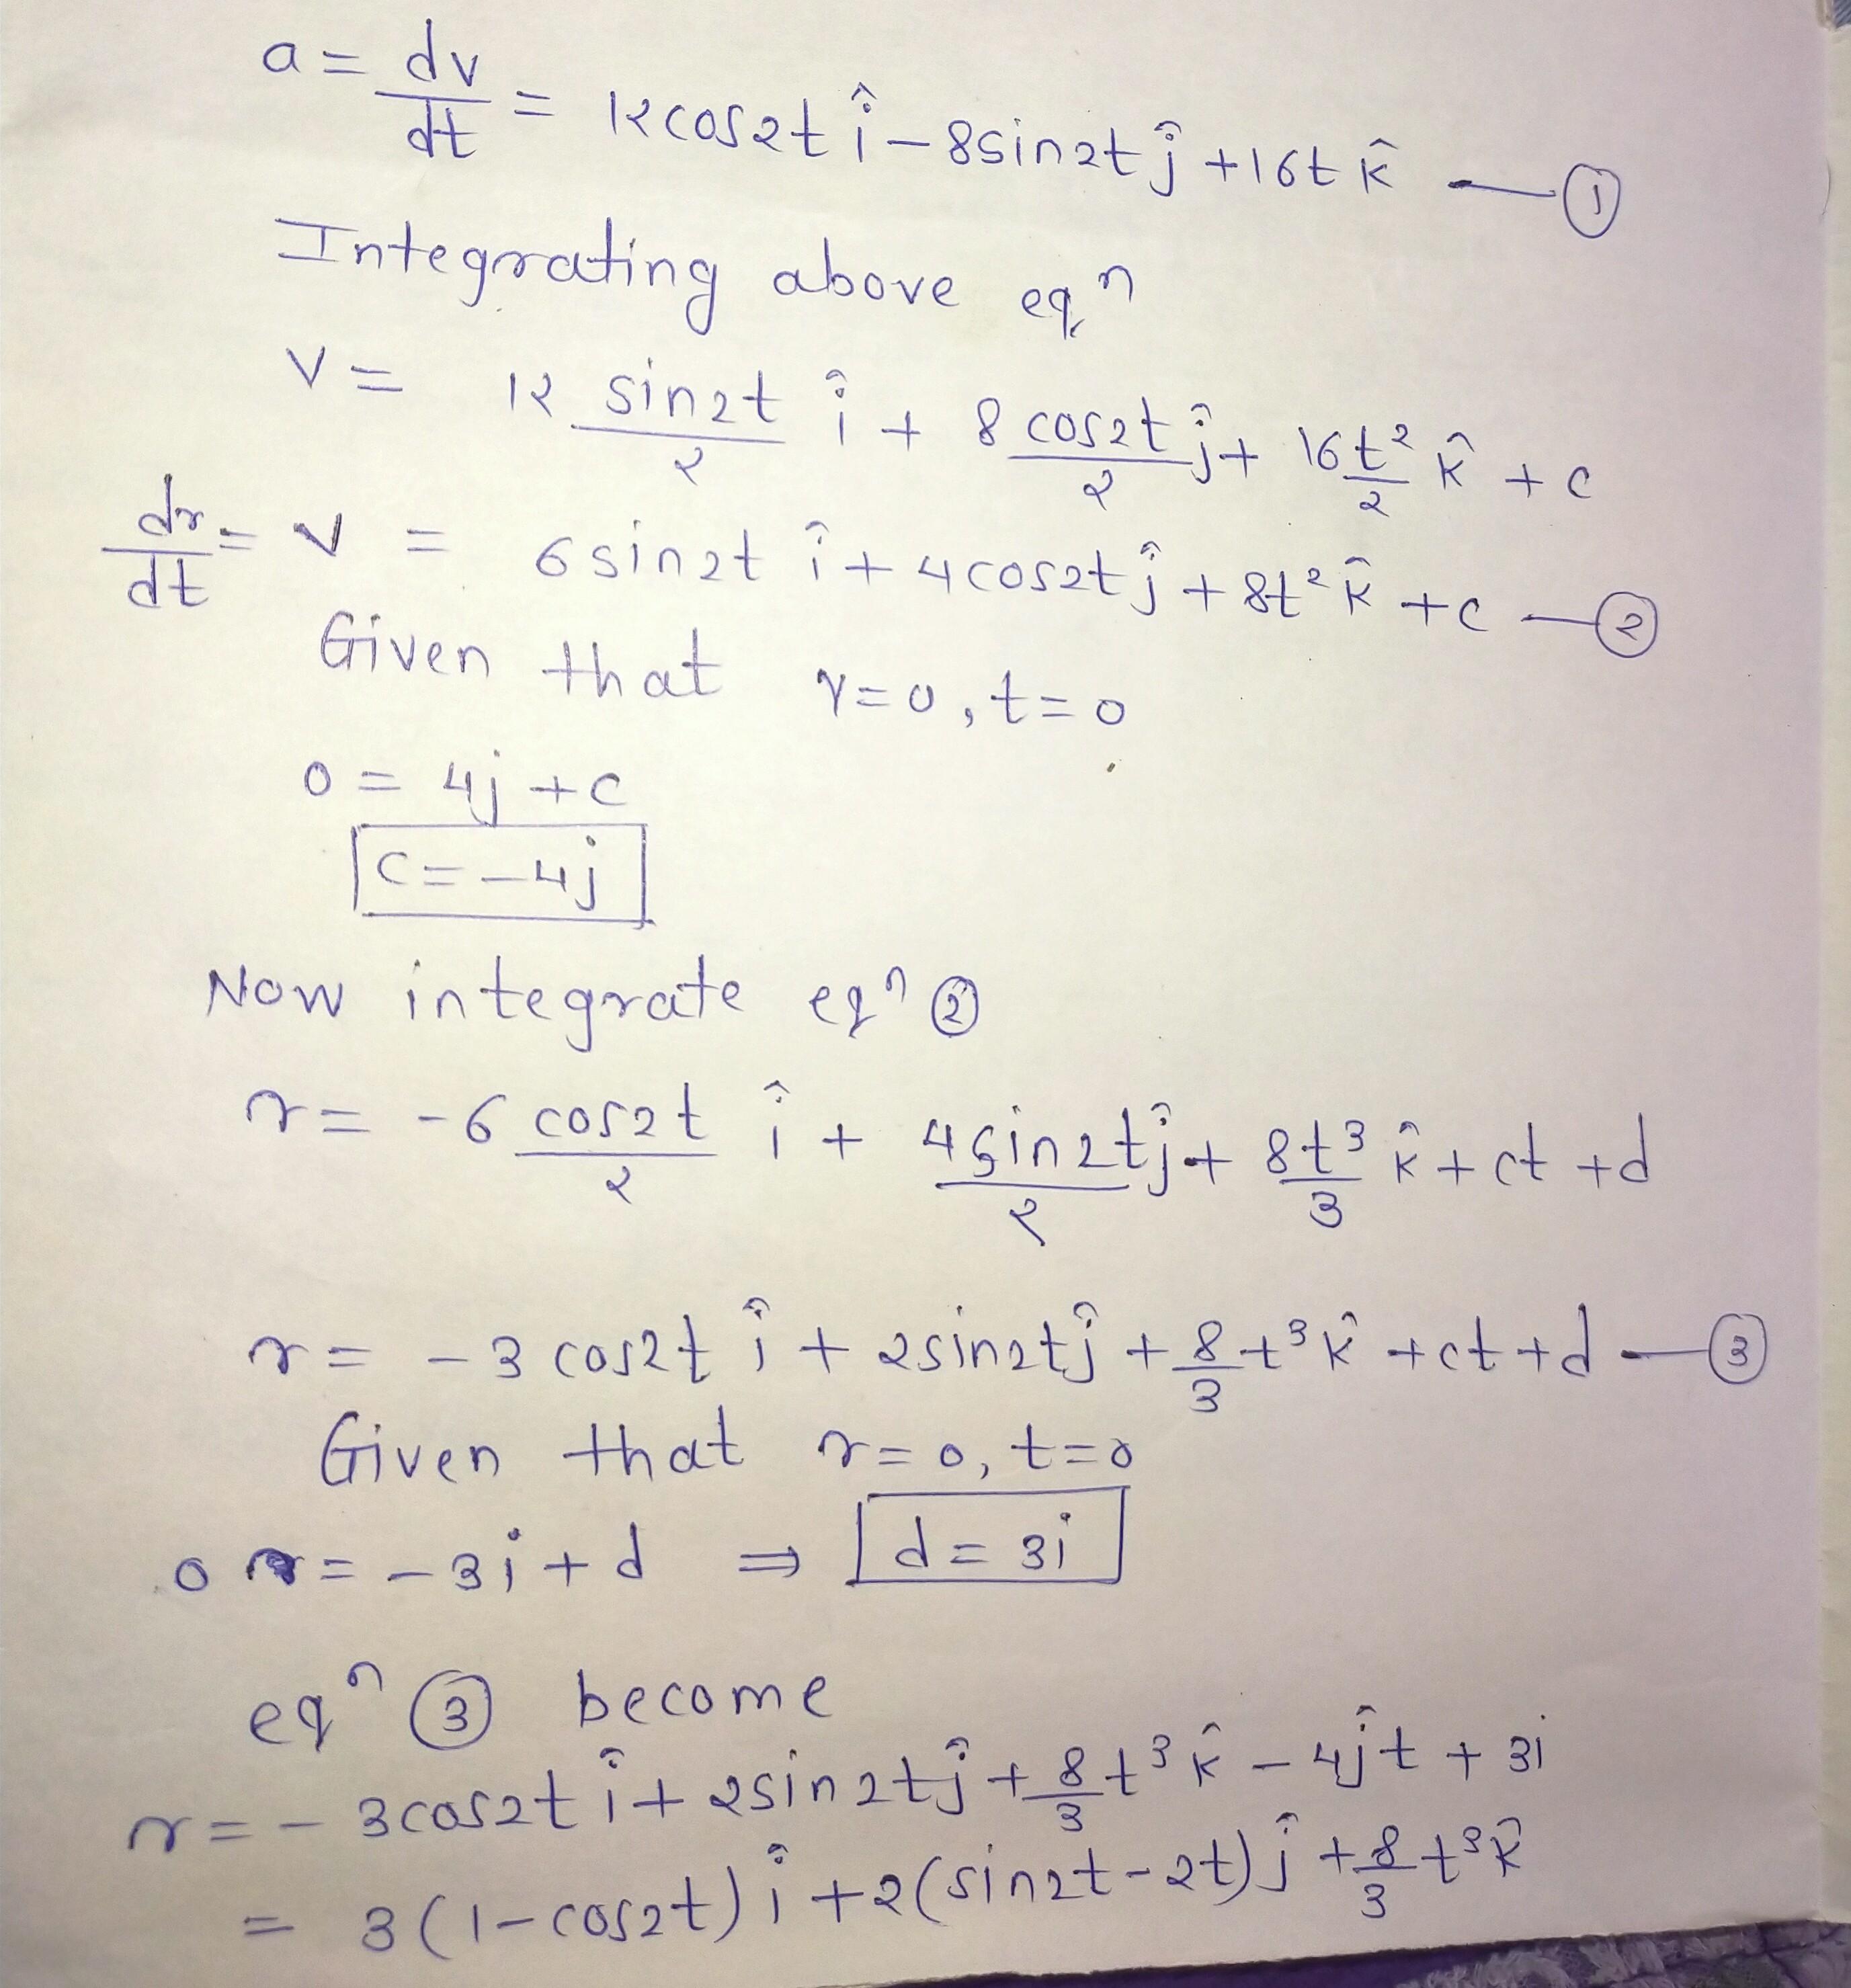 a = dv/dt = 12cos2t î - 8sin2t ĵ + 16t k̂ — ①
Integrating above eqⁿ
V = 12 sin2t/2 î + 8 cos2t/2 ĵ + 16 t²/2 k̂ + c
dr/dt = V = 6sin2t î + 4cos2t ĵ + 8t² k̂ + c — ②
Given that γ=0, t=0
0 = 4j + c
c = -4j
Now integrate eqⁿ ②
r = -6 cos2t/2 î + 4sin2t/2 ĵ + 8t³/3 k̂ + ct + d
r = -3 cos2t î + 2sin2t ĵ + 8/3 t³ k̂ + ct + d — ③
Given that r=0, t=0
0 = -3i + d ⇒ d = 3i
eqⁿ ③ become
r = - 3cos2t î + 2sin2t ĵ + 8/3 t³ k̂ - 4ĵt + 3i
= 3(1-cos2t) î + 2(sin2t-2t) ĵ + 8/3 t³ k̂